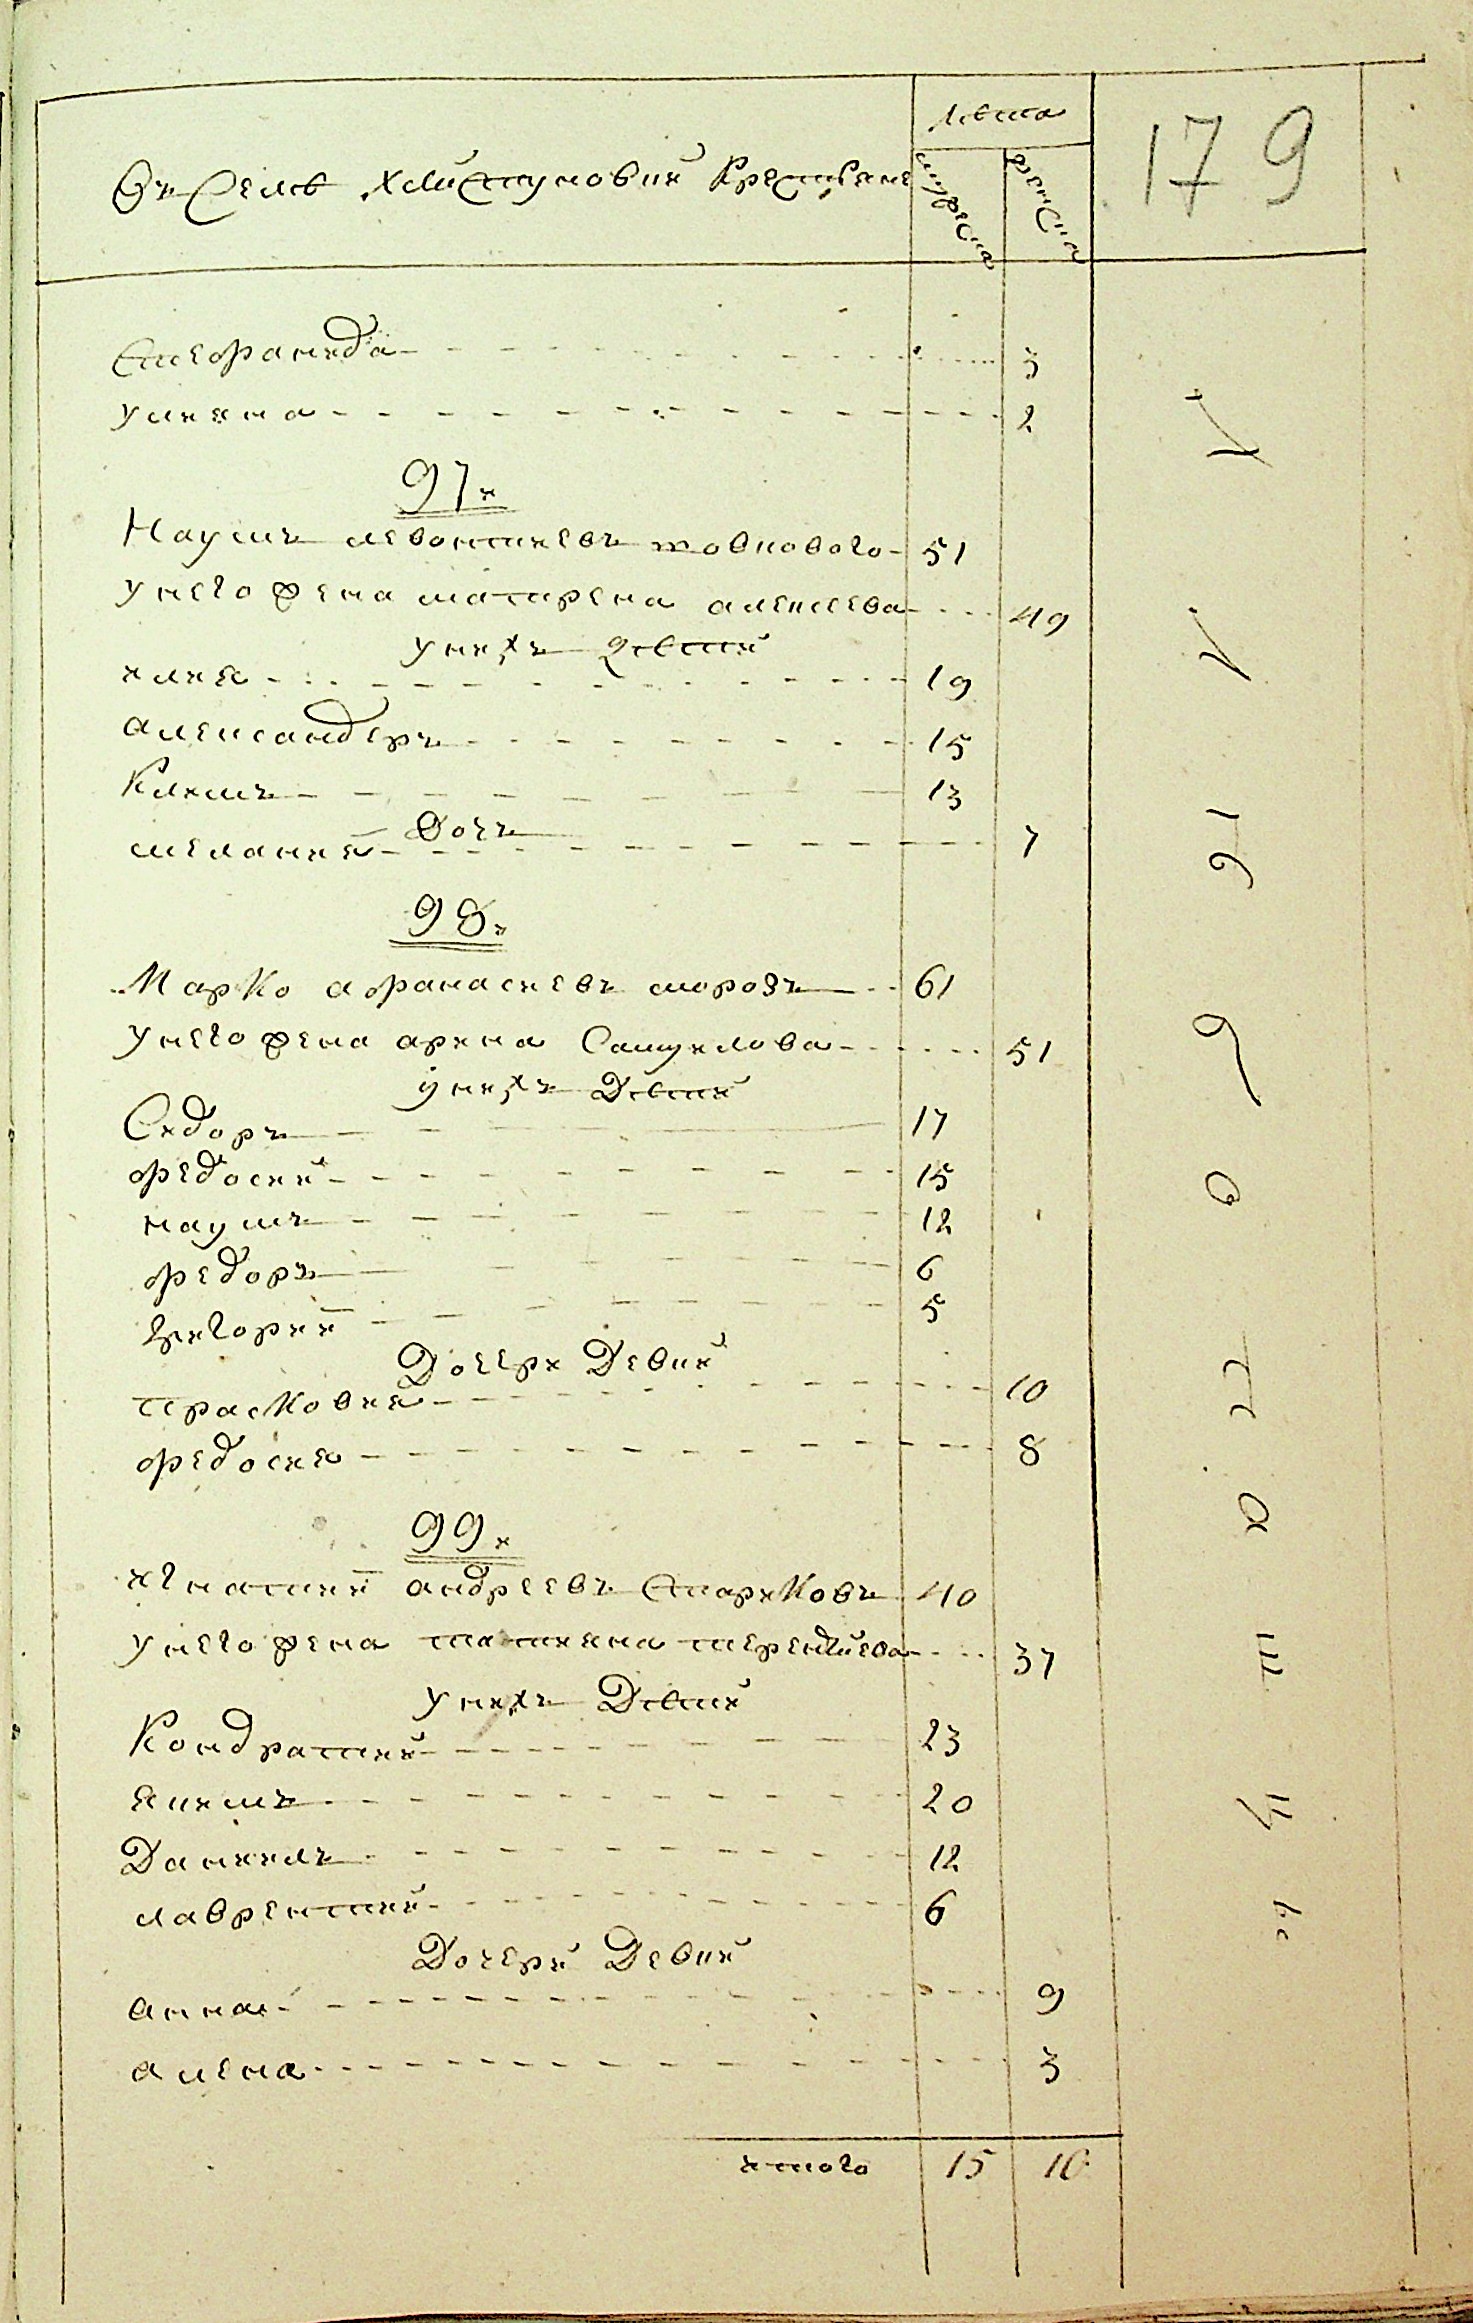 Лѣта
179
Въ Селѣ Хлистуновки Крестьяне
мужеска
женска
Стефанида 3
улияна 2
97и
Наумъ левонтиевъ жовнового 51
у него жена матрена алексеева 49
у нихъ дѣти
илия 19
александеръ 15
Климъ 13
Дочь
мелания 7
98и
Марко афанасиевъ морозъ 61
у него жена арина Самуилова 51
у нихъ Дѣти
Сидоръ 17
федосий 15
наумъ 12
федоръ 6
григорий 5
Дочери Девки
прасковия 10
федосия 8
99и
игнатий андреевъ Стариковъ 40
у него жена татияна терентиева 37
у нихъ Дѣти
Кондратий 23
якимъ 20
Даниилъ 12
лаврентий 6
Дочери Девки
анна 9
алена 3
итого 15 10